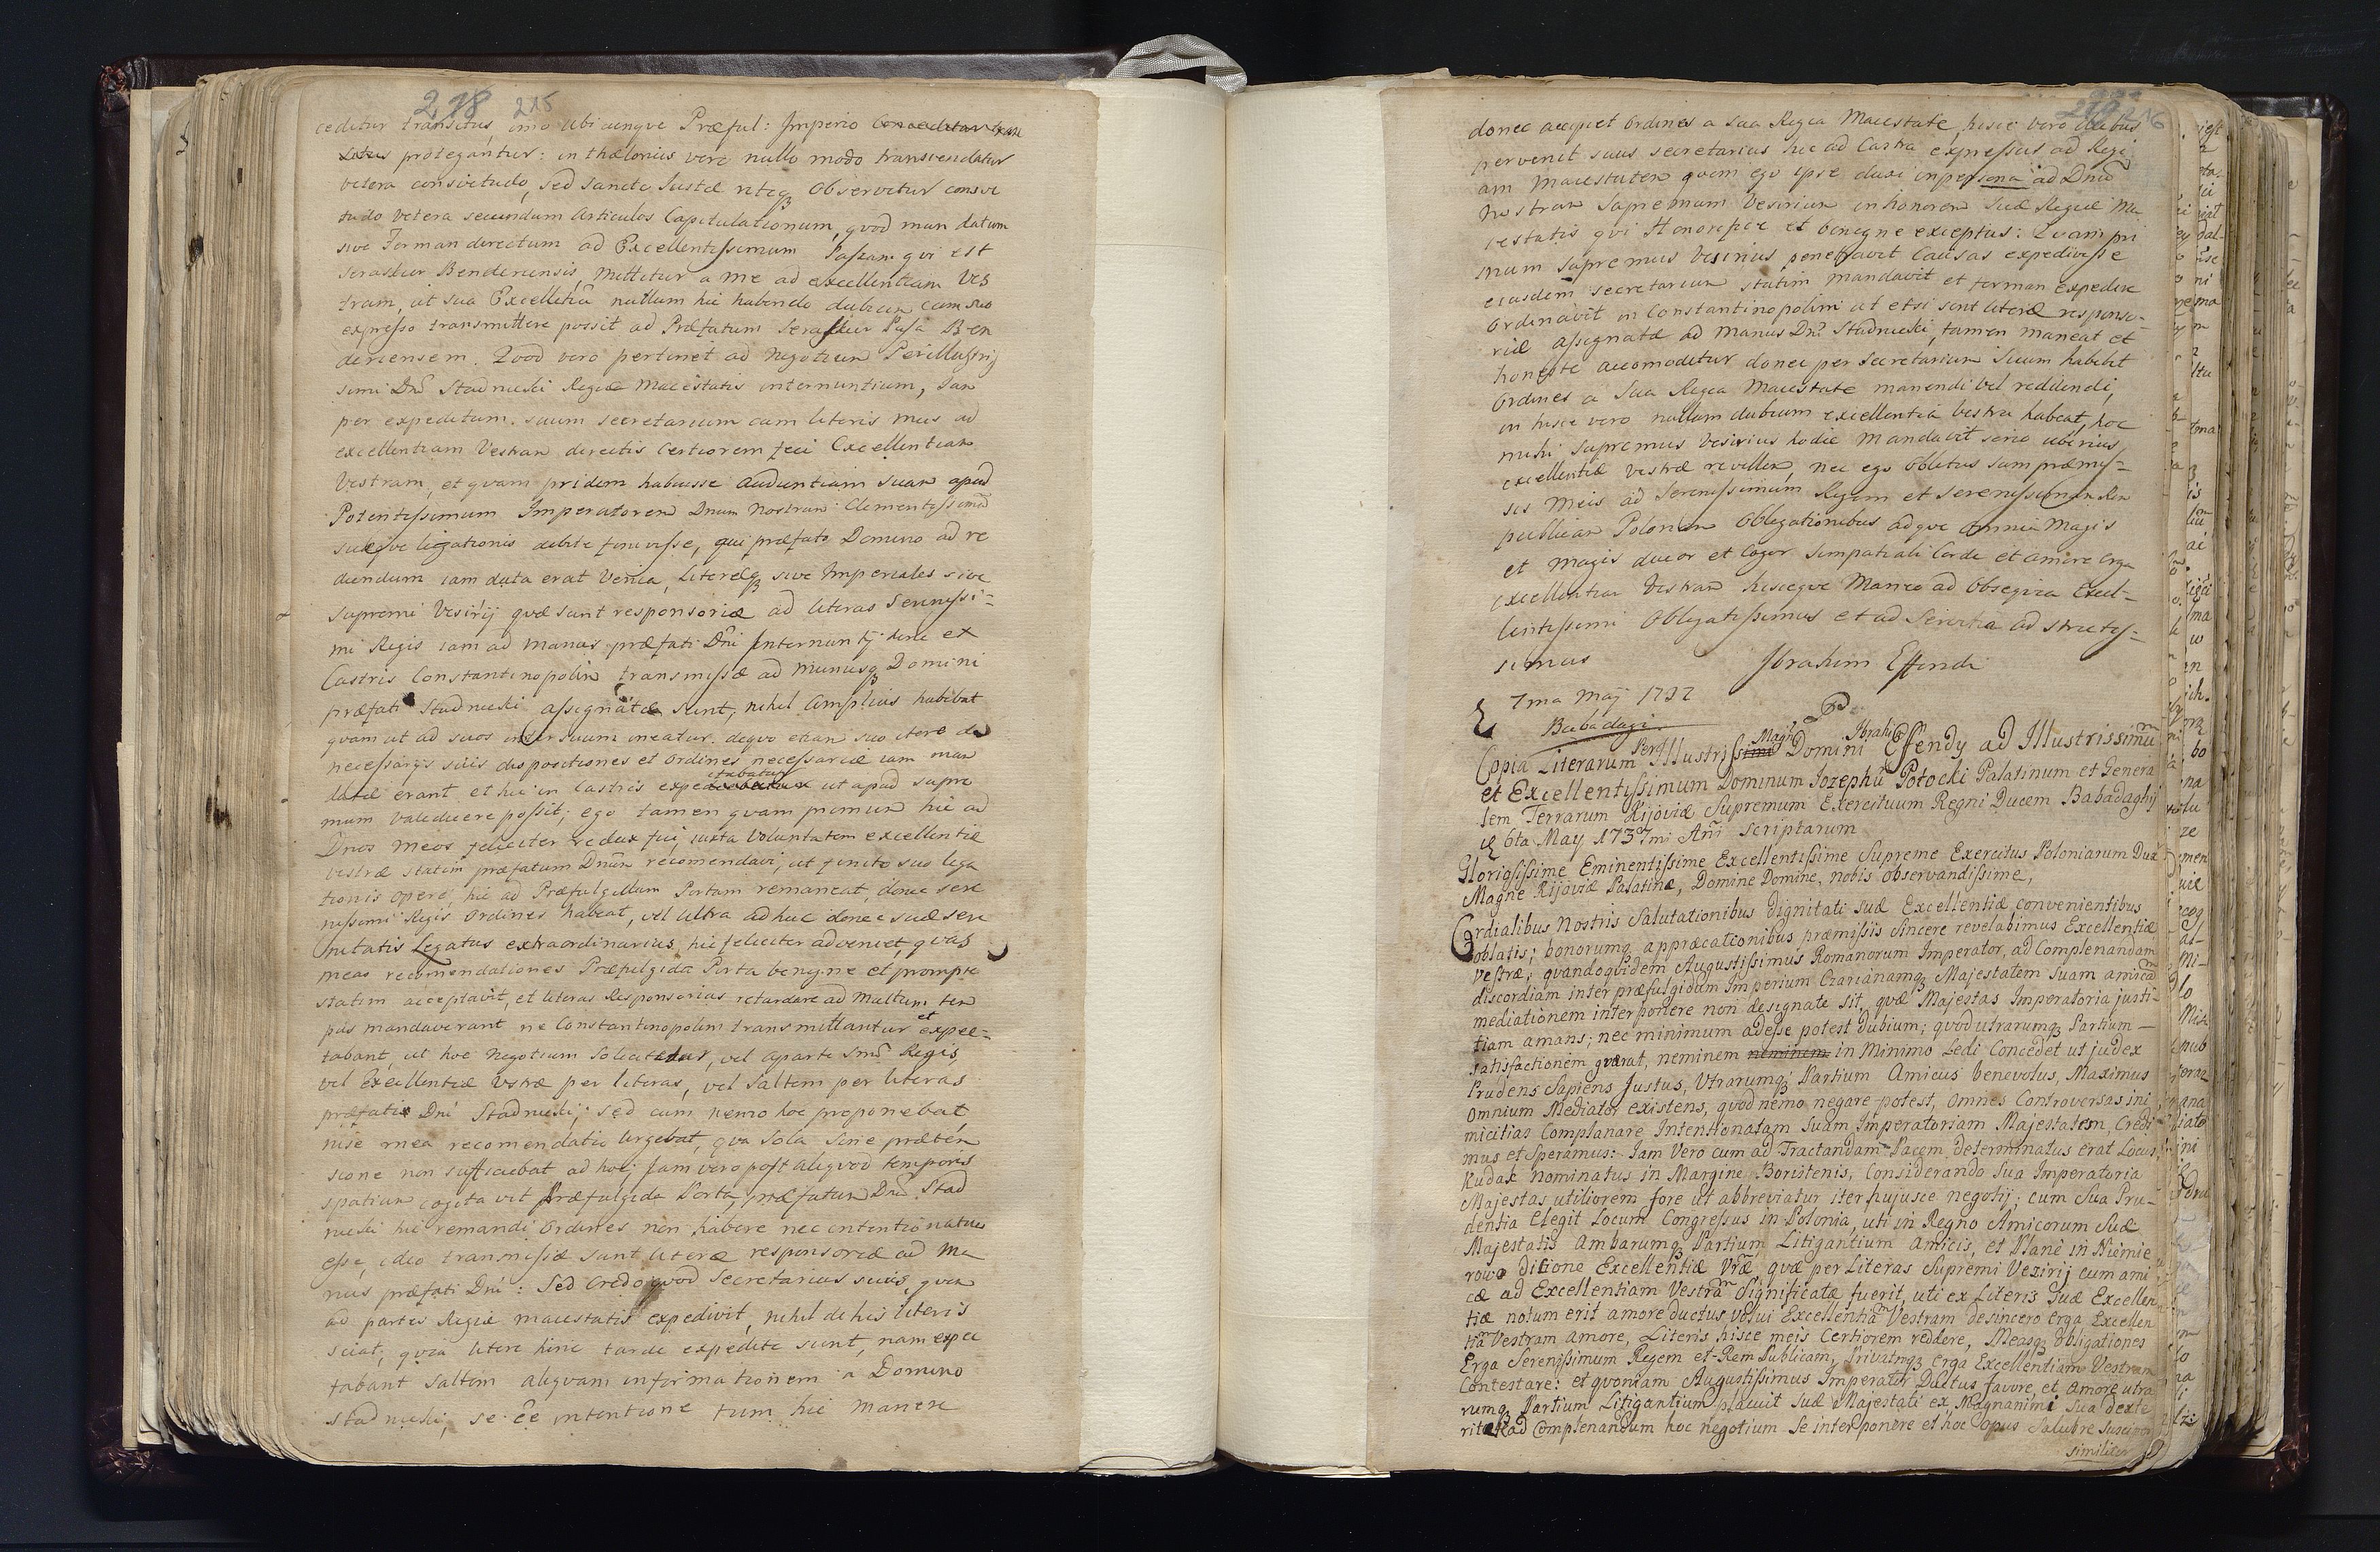 218 215
ceditur transitus, imo ubicunqve Præful: Imperio Conceditur tran
situs protegantur: in thæloniis vero nullo modo transvendatur
vetera consvetudo, sed sancte Justæ riteqꝫ observetur consve
tudo vetera secundum Articulos Capitulationum, qvod mandatum
sive Ferman directum ad Excellentissimum Paszam qvi est
Seraskier Benderiensis, Mittetur a me ad excellentiam Ves
tram, ut sua Excellẽtia nullum hic habendo dubium cum suo
expresso transmittere possit ad Præfatum Seraskier Pasa Ben
deriensem. Qvod vero pertinet ad Negotium Perillustris
simi Dni Stadnicki Regiæ Maiestatis internuntium, Jam
per expeditum suum secretarium cum literis meis ad
excellentiam Vestram directis Certiorem feci Excellentiam
Vestram, et qvam pridem habuisse Audientiam suam apud
Potentissimum Imperatorem Dnum Nostrum Clementissimũ
suæqve legationis debite finivisse, qui præfato Domino ad re
deundum iam data erat Venia, Literæqꝫ sive Imperiales sive
Supremi Vesirij qvæ sunt responsoriæ ad literas Serenissi=
mi Regis iam ad manus præfati Dni Internuntij hinc ex
Castris Constantinopolim transmissæ ad manusqꝫ Domini
præfati Stadnicki assignatæ sunt, nihil amplius habebat
qvam ut ad suos inter suum ineatur. deqvo etiam suo itere de
necessarijs suis dispositiones et ordines necessariæ iam man
datæ erant et hic in Castris expectabatur ut apud supre
mum valedicere possit; ego tamen qvam primum hic ad
Dnos meos feliciter redux fui, iuxta voluntatem excellentiæ
vestræ statim præfatum Dnum recomendavi, ut finito suo lega
tionis opere, hic ad Præfulgidam Portam remaneat, donec sere
nissimi Regis ordines habeat, vel ultra ad huc donec suæ sere
nitatis Legatus extraordinarius, hic feliciter adveniet, qvas
meas recomendationes Præfulgida Porta benigne et prompte
statim acceptavit, et literas Responsorias retardare ad Multum tem
pus mandaverant ne Constantinopolim transmittantur et expec=
tabant, ut hoc Negotium solicitetur, vel aparte Smi Regis,
vel Excellentiæ Vstræ per literas, vel saltem per literas
præfati Dni Stadnicki; sed cum nemo hoc proponebat
nisi mea recomendatio urgebat, qva sola sine præten
sione non sufficiebat ad hoc; Jam vero post aliqvod temporis
spatium cogitavit Præfulgida Porta, præfatum Dnũ Stad
nicki hic remandi ordines non habere nec intentionatus
esse, ideo transmissæ sunt literæ responsoriæ ad ma
nus præfati Dni: Sed credo qvod Secretarius suus, qvem
ad partes Regiæ maiestatis expedivit, nihil de his literis
sciat; qvia litere hinc tarde expedite sunt, nam expec
tabant saltem aliqvam informationem a Domino
Stadnicki, se êe intentione tum hic manere
219 216
donec accipiet ordines a sua Regia Maiestate, hisce vero diebus
pervenit suus secretarius hic ad Castra expressus ad Regi
am Maiestatem qvem ego ipse duxi in persona ad Dnũ
Nostrum Supremum Vesirium in honorem Suæ Regiæ Ma
iestatis qvi Honorifice et benigne exceptus: Qvam pri
mum supremus Vesirius penetravit Causas expedivisse
eiusdem secretarium statim mandavit et ferman expedire
ordinavit in Constantinopolim ut etsi sint literæ responso=
riæ assignatæ ad Manus Dni Stadnicki, tamen maneat et
honeste accomodetur donec per Secretarium Suum habebit
ordines a Sua Regia Maiestate manendi vel redeundi,
in hisce vero nullum dubium excellentia vestra habeat, hoc
mihi supremus Vesirius hodie mandavit serio uberius
excellentiæ vestræ revellere, nec ego oblitus sum præmis=
sis Meis ad Serenissimum Regem et Serenissimam Rem
publicam Polonam obligationibus adqve omnia Magis
et magis ducor et cogor simpatiali Corde et amore erga
excellentiam Vestram hisceqve Maneo ad obseqvia Excel=
lentissimi obligatissimus et ad Servitia ad strictis=
simus Ibrahim Effendi
7ma Maij 1737
Babadagi
Copia Literarum PerIllustrissimi Magci Domini Ibrahim Effendy ad Illustrissimũ
et Excellentissimum Dominum Jozephũ Potocki Palatinum et Genera
lem Terrarum Kijoviæ Supremum Exercituum Regni Ducem Babadaghij
æ 6ta May 1737mi Añi Scriptarum
Gloriosissime Eminentissime Excellentissime Supreme Exercitus Poloniarum Dux
Magne Kijoviæ Palatine, Domine Domine, nobis observandissime,
Cordialibus Nostris Salutationibus dignitati suæ Excellentiæ convenientibus
oblatis; bonorumqꝫ appræcationibus præmissis sincere revelabimus Excellentiæ
Vestræ; qvandoqvidem Augustissimus Romanorum Imperator, ad Complenandam
discordiam inter præfulgidum Imperium Czarianamqꝫ Majestatem suam amicam
mediationem interponere non designate sit, qvæ Majestas Imperatoria justi=
tiam amans; nec minimum adesse potest dubium; qvod utrarumqꝫ Partium
satisfactionem qværat, neminem neminem in Minimo Ledi Concedet ut judex
Prudens Sapiens Justus, Utrarumqꝫ Partium Amicus benevolus, Maximus
omnium Mediator existens, qvod nemo negare potest, omnes Controversas ini
micitias Complanare Intentionatam Suam Imperatoriam Majestatem, Credi
mus et Speramus: Iam Vero cum ad Tractandam Pacem determinatus erat Locus,
Kudak nominatus in Margine Boristenis, Considerando Sua Imperatoria
Majestas utiliorem fore ut abbreviatur iter hujusce negotij; cum Sua Pru=
dentia Elegit Locum Congressus in Polonia, uti in Regno Amicorum Suæ
Majestatis Ambarumqꝫ Partium Litigantium Amicis, et Plane in Niemie
rowo Ditione Excellentiæ Vræ qvæ per Literas Supremi Vezirij cum ami
cæ ad Excellentiam Vestrã significatæ fuerit, uti ex Literis Suæ Excellen
tiæ notum erit amore ductus volui Excellentiã Vestram desincero Erga Excellen
tiã Vestram amore, Literis hisce meis Certiorem reddere, Measqꝫ obligationes
Erga Serenissimum Regem et Rem Publicam, Privatimqꝫ Erga Excellentiam Vestram
Contestare: et qvoniam Augustissimus Imperator Ductus favore, et Amore utra
rumqꝫ Partium Litigantium placuit Suæ Majestati ex Magnanimi Sua dexte
ritate ad Complenandum hoc negotium Se interponere et hoc opus Salubre Suscipere
similiter